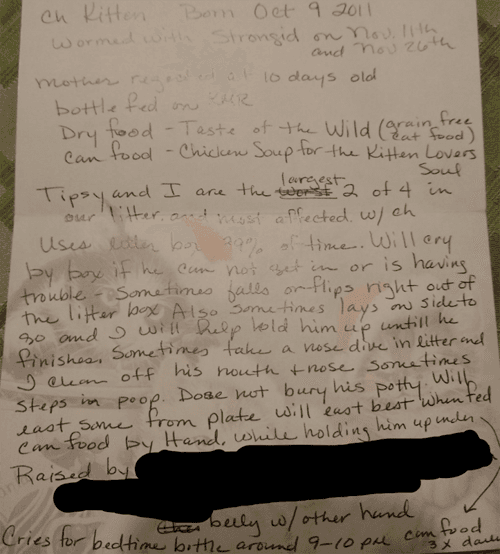 ch Kitten Born Oct 9 2011
Wormed with Strongid on Nov. 11th
and Nov 26th
mother rejected at 10 days old
bottle fed on KMR
Dry food - Taste of the Wild (grain free
cat food)
Can food - Chicken Soup for the Kitten Lovers
Soul
largest
Tipsy and I are the worst 2 of 4 in
our litter and most affected. w/ ch
Uses litter box 99% of time. Will cry
by box if he can not get in or is having
trouble - Sometimes falls or flips right out of
the litter box Also Sometimes lays on side to
go and I will help hold him up untill he
finishes. Sometimes take a nose dive in litter and
I clean off his mouth + nose Sometimes
Steps in poop. Dose not bury his potty. Will
east some from plate will east best when fed
can food by Hand, while holding him up under
Raised by
belly w/ other hand
Cries for bedtime bottle around 9-10 pm can food
3x day